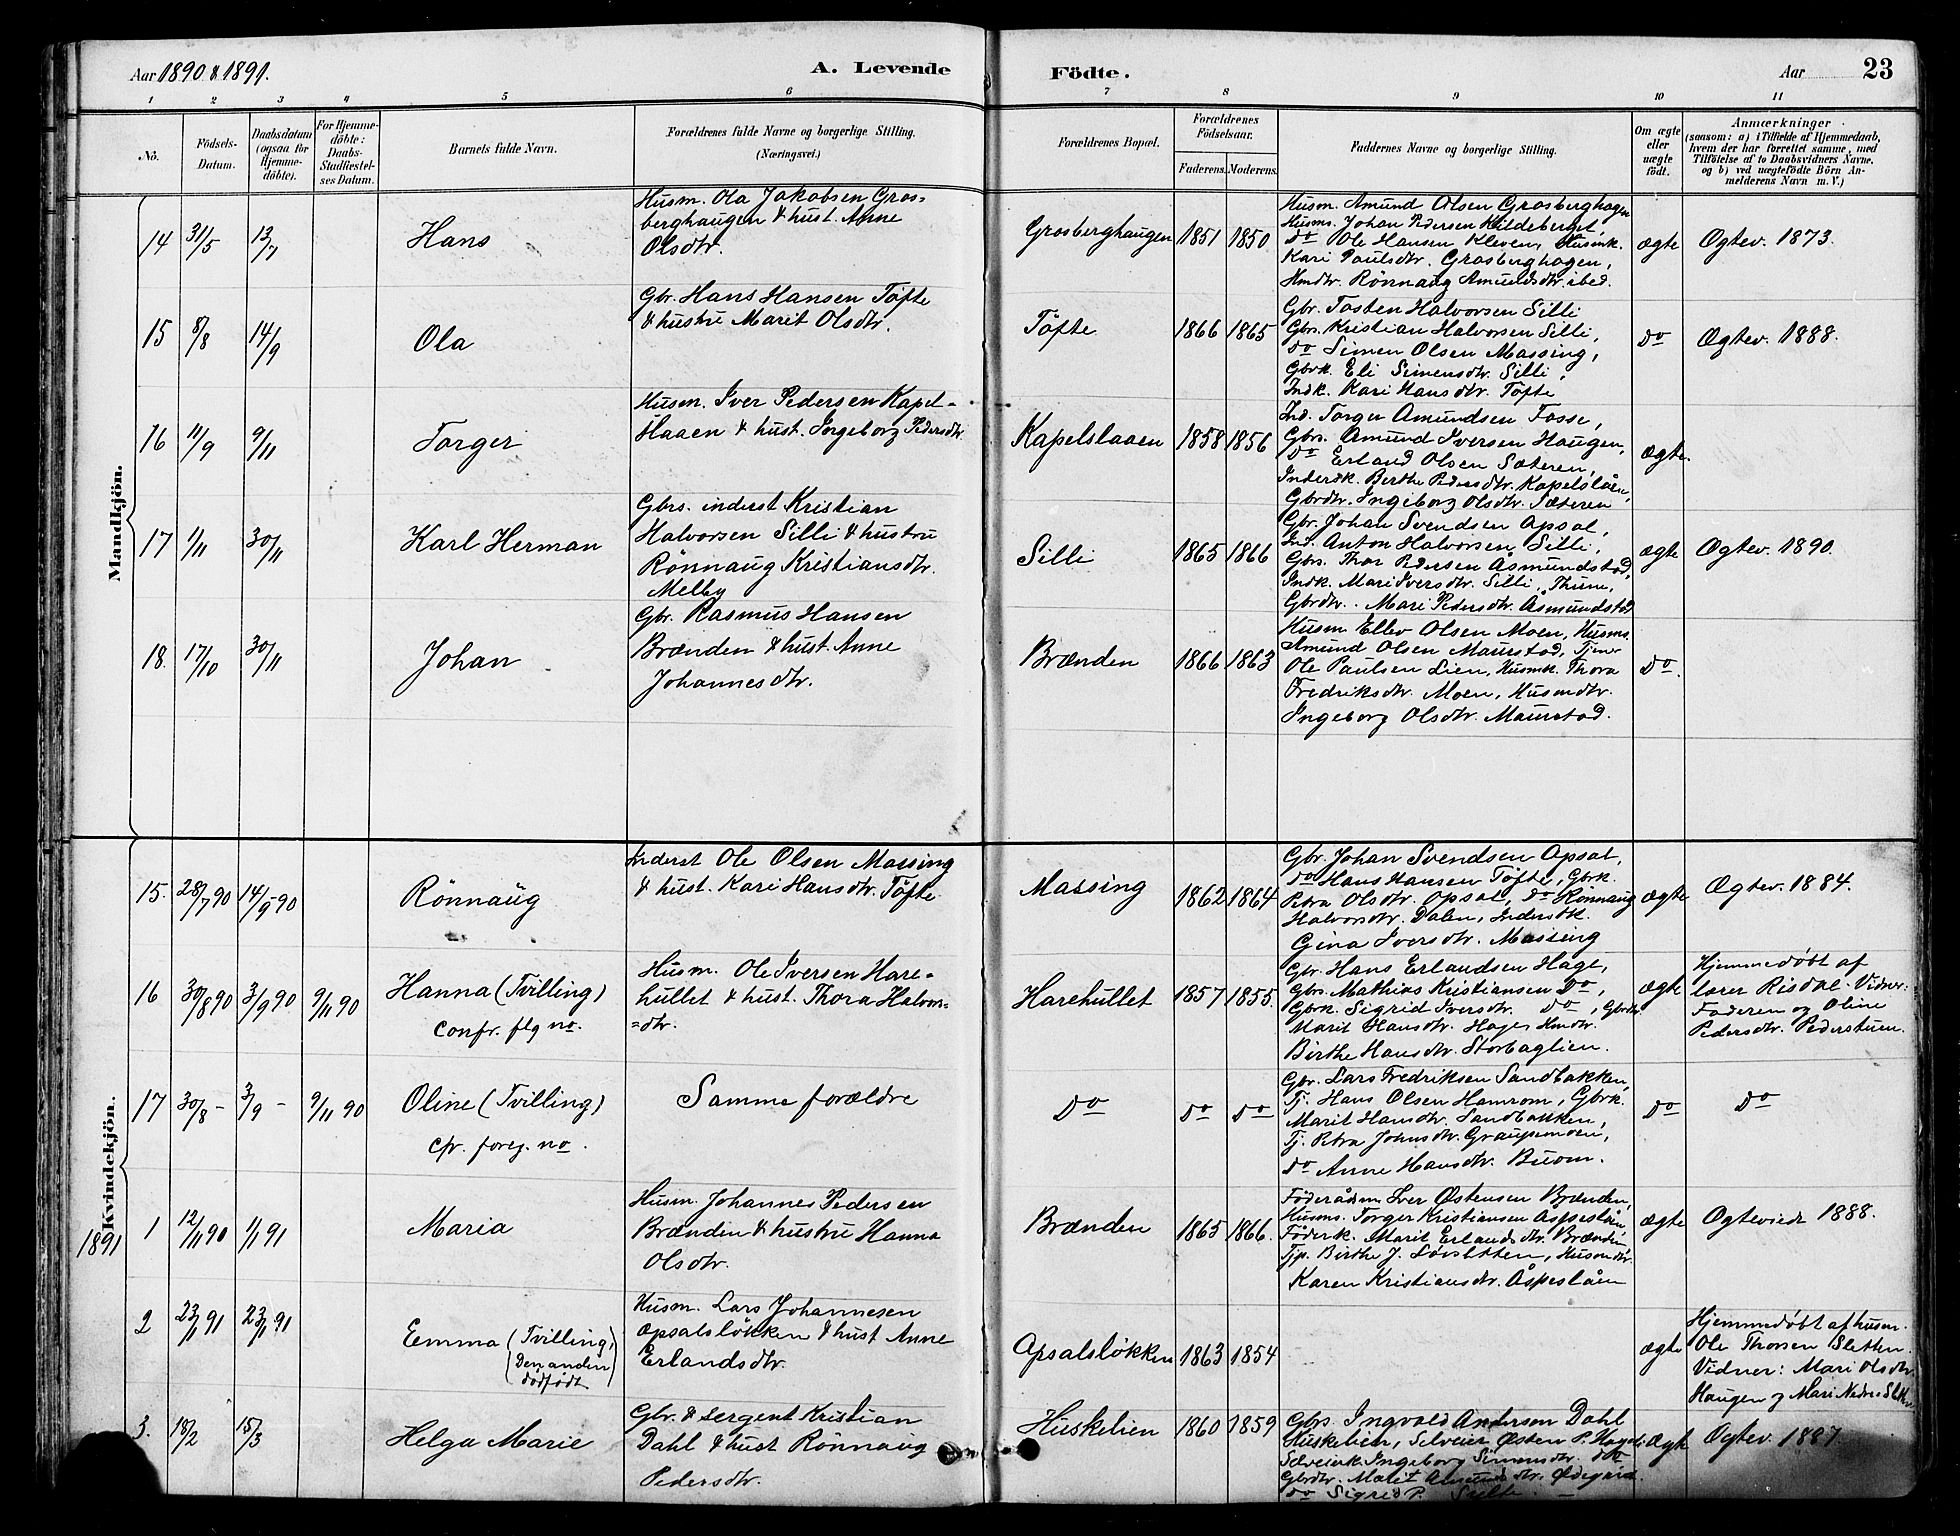 Aar 1890 & 1891.
A. Levende
Födte.
Aar
23
1 2 3 4 5 6 7 8 9 10 11
No.
Födsels-
Datum.
Daabsdatum
(ogsaa for
Hjemme-
döbte).
For Hjemme-
döbte:
Daabs-
Stadfæstel-
ses Datum.
Barnets fulde Navn.
Forældrenes fulde Navne og borgerlige Stilling.
(Næringsvei.)
Forældrenes Bopæl.
Forældrenes
Födselsaar.
Faderens. Moderens.
Faddernes Navne og borgerlige Stilling.
Om ægte
eller
uægte
födt.
Anmærkninger
(saasom: a) i Tilfælde af Hjemmedaab,
hvem der har forrettet samme, med
Tilföielse af to Daabsvidners Navne,
og b) ved uægtefödte Börn An-
melderens Navn m. V.)
Mandkjön.
14 31/5 13/7
Hans
Husm. Ola Jakobsen Gros-
berghaugen & hust. Anne
Olsdtr.
Grosberghaugen 1851 1850
Husm. Amund Olsen Grosberghagen
Husms. Johan Pedersen Kildeberget,
do Ole Hansen Kleven, Husmk.
Kari Paulsdtr. Grosberghagen,
Hmdtr. Rönnaug Amundsdtr ibed.
ægte
Ogtev. 1873.
15 8/8 14/9
Ola
Gbr. Hans Hansen Tøfte
& hustru Marit Olsdtr.
Tøfte 1866 1865
Gbr. Tosten Halvorsen Silli
Gbrs. Kristian Halvorsen Silli,
do Simen Olsen Massing,
Gbrk. Eli Simensdtr. Silli,
Indk. Kari Hansdtr. Tøfte
do
Ægtev. 1888.
16 11/9 9/11
Torger
Husm. Iver Pedersen Kapel-
slaaen & hust. Ingeborg Pedersdtr
Kapelslaaen 1858 1856
Ind. Torger Amundsen Fosse,
Gbrs. Amund Iversen Haugen,
do Erland Olsen Sæteren,
Inderstk. Berthe Pedersdtr. Kapelslåen,
Gbrdtr. Ingeborg Olsdtr. Sæteren
ægte.
17 1/11 30/11
Karl Herman
Gbrs. inderst Kristian
Halvorsen Silli & hustru
Rönnaug Kristiansdtr.
Melby
Silli 1865 1866
Gbr. Johan Svendsen Opsal,
Ind. Anton Halvorsen Silli,
Gbrs. Thor Pedersen Åsmundstad,
Indk. Mari Iversdtr. Silli, Thune,
Gbrdtr. Mari Pedersdtr. Åsmundstad
ægte
Ogtev. 1890.
18. 17/10 30/11
Johan
Gbr. Rasmus Hansen
Brænden & hust. Anne
Johannesdtr.
Brænden 1866 1863
Husm Ellev Olsen Moen, Husms.
Amund Olsen Maurstad, Tjener
Ole Paulsen Lien, Husmk. Thora
Fredriksdtr. Moen, Husmdtr.
Ingeborg Olsdtr. Maurstad.
do.
Kvindekjön.
15. 28/7 90 14/9 90
Rönnaug
Inderst Ole Olsen Massing
& hust. Kari Hansdtr. Tøfte
Massing 1862 1864
Gbr. Johan Svendsen Opsal,
do Hans Hansen Tøfte, Gbrk.
Petra Olsdtr. Opsal, do Rönnaug
Halvorsdtr. Dalen, Inderstk.
Gina Iversdtr. Massing
ægte
Ægtev. 1884.
16 30/8 90 3/9 90 9/11 90
Hanna (Tvilling)
confr. flg no.
Husm. Ole Iversen Hare-
hullet & hust. Thora Halvors-
=dtr.
Harehullet 1857 1855.
Gbr. Hans Erlandsen Hage,
Gbrs. Mathias Kristiansen do,
Gbrk. Sigrid Iversdtr. do, Gbrdtr
Marit Hansdtr. Hage, Hmdtr.
Birthe Hansdtr. Storbaglien.
ægte
Hjemmedøbt af
lærer Risdal. Vidner:
Faderen og Oline
Pedersdtr. Pederstuen.
17 30/8 - 3/9 - 9/11 90
Oline (Tvilling)
cfr. foreg. no.
Samme forældre
do do do
Gbr. Lars Fredriksen Sandbakken,
Tj. Hans Olsen Hamrom, Gbrk.
Marit Hansdtr. Sandbakken,
Tj. Petra Johnsdtr. Graupemoen,
do Anne Hansdtr. Buom.
do
do
1891
1 12/11 90 1/1 91
Maria
Husm. Johannes Pedersen
Brænden & hustru Hanna
Olsdtr.
Brænden 1865 1866.
Føderådsm. Iver Østensen Brænden,
Husms. Torger Kristiansen Åspeslåen
Føderk. Marit Erlandsdtr. Brænden
Tjp. Birthe J. , Husmdtr.
Karen Kristiansdtr. Åspeslåen
ægte
Ogteviede 1888.
2 23/1 91 23/1 91
Emma (Tvilling,
Den anden
dødfødt)
Husm. Lars Johannesen
Opsalsløkken & hust Anne
Erlandsdtr.
Opsalsløkken 1863 1854
ægte
Hjemmedøbt af husm.
Ole Thorsen Sletten.
Vidner: Mari Olsdtr
Haugen og Mari Nedre Sletten
3. 18/2 15/3
Helga Marie
Gbr. & sergent Kristian
Dahl & hust Rönnaug
Pedersdtr.
Huskelien 1860 1859
Gbrs. Ingvald Anderson Dahl
Huskelien, Selveier Østen P. Hagel,
Selveierk. Ingeborg Simensdtr. do
Gbrdtr. Marit Amundsdtr.
do Sigrid P.
ægte
Ogtev. 1887.